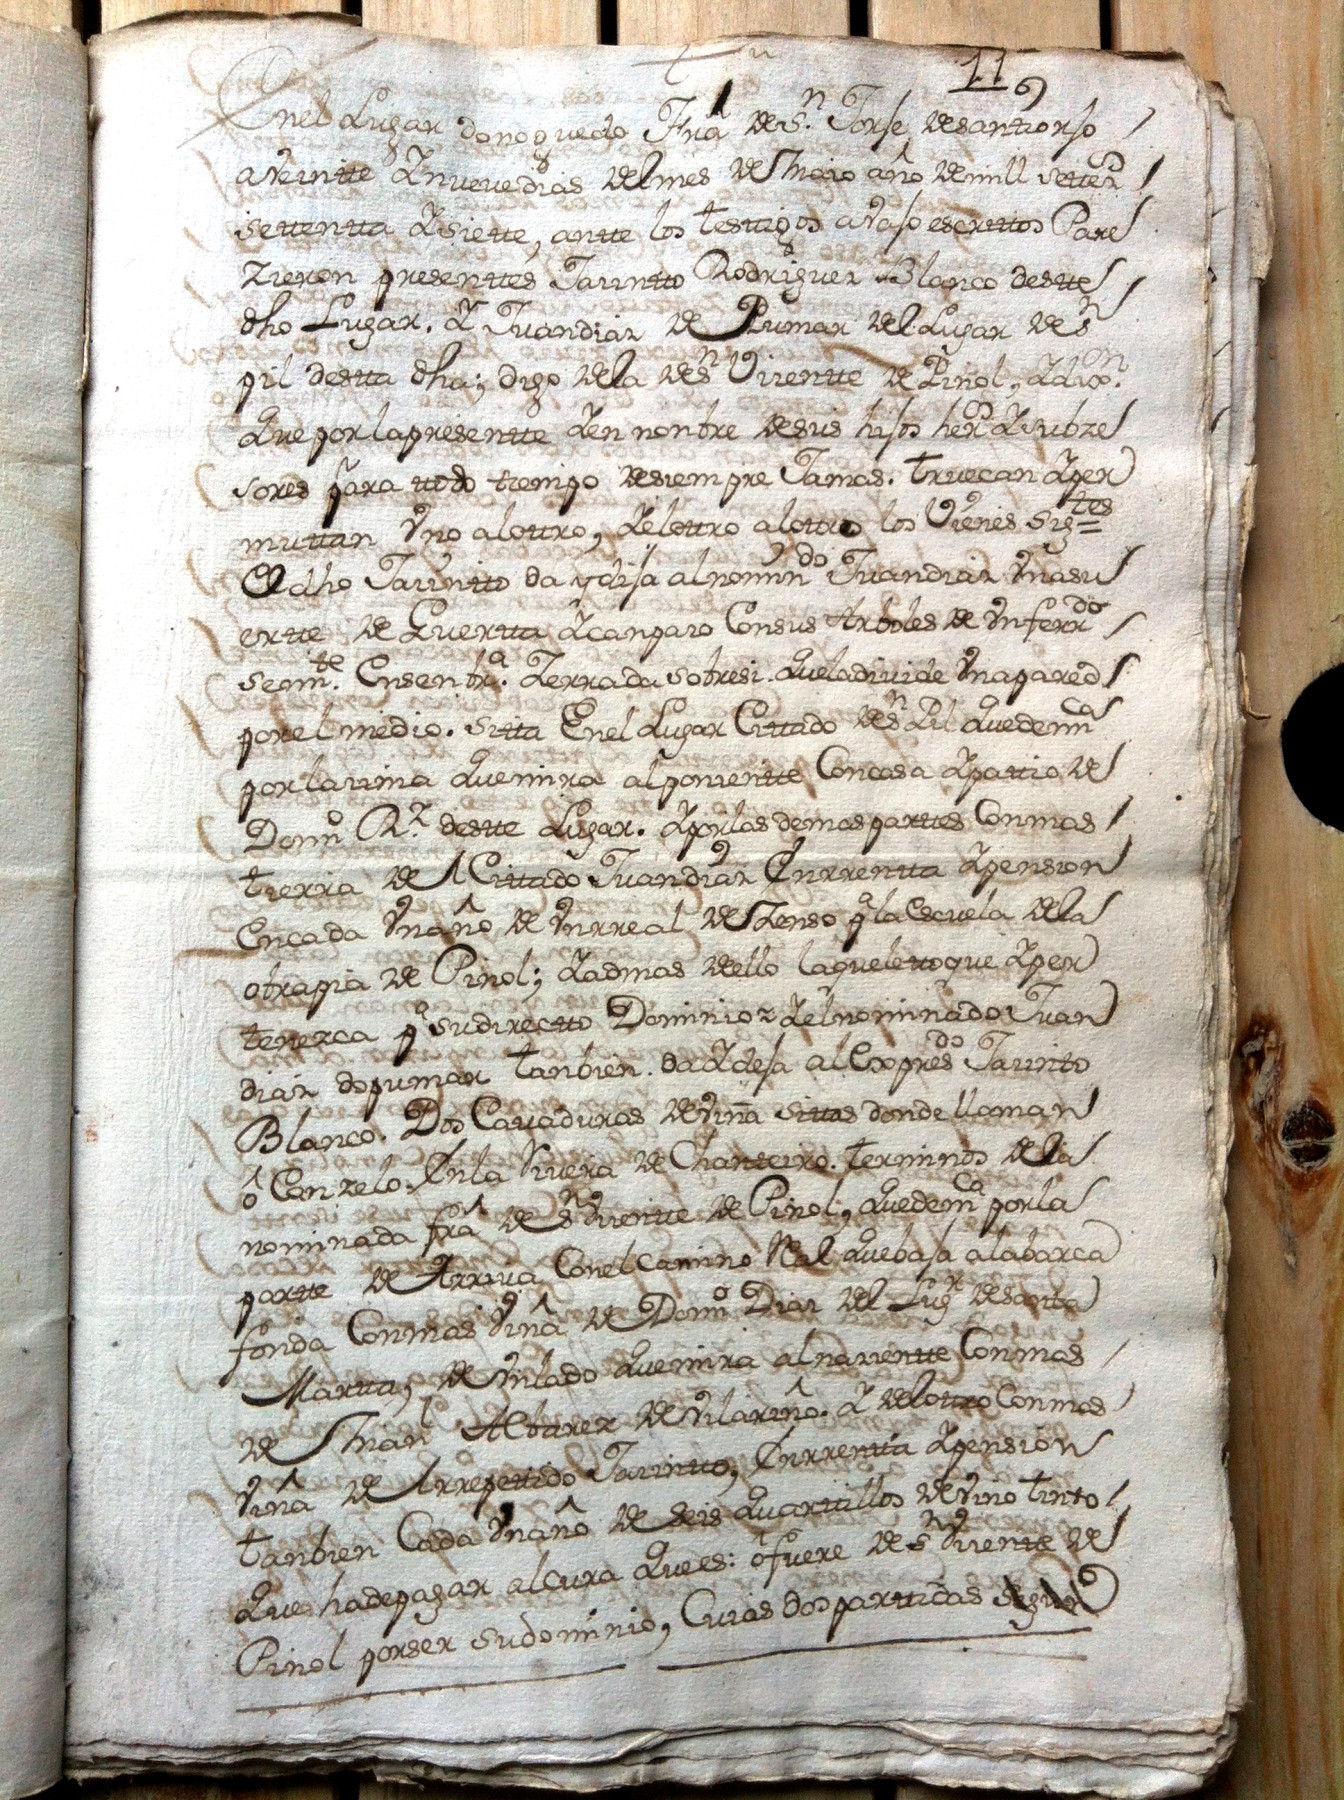 11
Enel Lugar donoguedo Frâ de Sn. Jorje desantiorjo
aveintte Ynuevedias delmes de Maio año demill settezs
settentta Ysiette, antte los testtigos avajo escrittos Pare
zieron presenttes Jazintto Rodriguez Blanco destte
dho Lugar. Y Juandiaz de Pumar del Lugar de Sn
pil destta dha; digo dela desn Vizentte de Pinol, Ydixon.
Queporlapresentte Yen nontre desus hijos hers Ysubze
sores para ttodo tiempo desiempre Jamas. truecan Yper
muttan Uno alottro, Yelottro alottro los Vienes sigtes=
El dho Jazintto da ydeja alnomindo Juandiaz Unasu
ertte de Guertta Ycanpazo Consus Arboles de Unferrdo
semte. Ensentra. Zerrada sobresi. Queladivide Unapared
porelmedio. sitta Enel Lugar Cittado de Sn Pil Quedemca
porlazima Quemira alponientte Concasa Ypattio de
Domo Rz desste Lugar. Yporlasdemaspartes Conmas
tierra del Cittado Juandiaz Enrrentta Ypension
Encada Unaño de Unrreal de Zenso pa la Escuela dela
obrapia de Pinol; Yadmas dello laqueletoque Yper
tenezca pr sudirectto Dominio= Yelnominado Juan
diaz dopumar tanbien. da Ydeja alExpresdo Jazinto
Blanco. Dos Cavaduras deviña sittas donde llaman
ô Canzelo. Enla Rivera de Chanteiro. terminos dela
nominada frâ de Sn Vizentte de Pinol; Quedemca porla
partte de Arriva Conelcamino Real Quebaja alabarca
fonda Conmas Viña de Domo Diaz del Lugr desanta
Martta, de Unlado Quemira alnazientte Conmas
de Juan Albarez de Vilariño. Y delottro Conmas
Viña de Arrepettido Jazintto, Enrrentta Ypension
tanbien Cada Unaño de seis Quarttillos de Vino tinto
Que hadepagar alcura Quees: ôfuere de Sn Vizente de
Pinol porser sudominio, Cuias dosparttidas segun